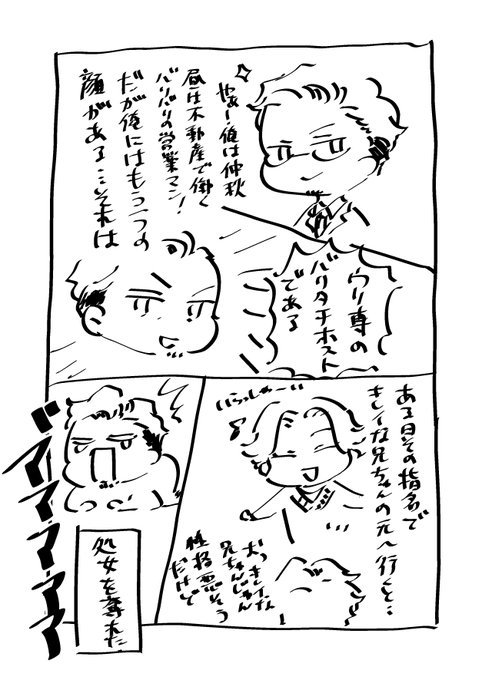 やあー俺は仲秋
昼は不動産で働く
バリバリの営業マン！
だが俺にはもう一つの
顔がある…それは
ウリ専の
バリタチホスト
である
ある日その指名で
キレーな兄ちゃんの元へ行くと…
いらっしゃーい
おっキレーな
兄ちゃんじゃん
性格悪そう
だけど
ドアアアアアア
処女を奪われた